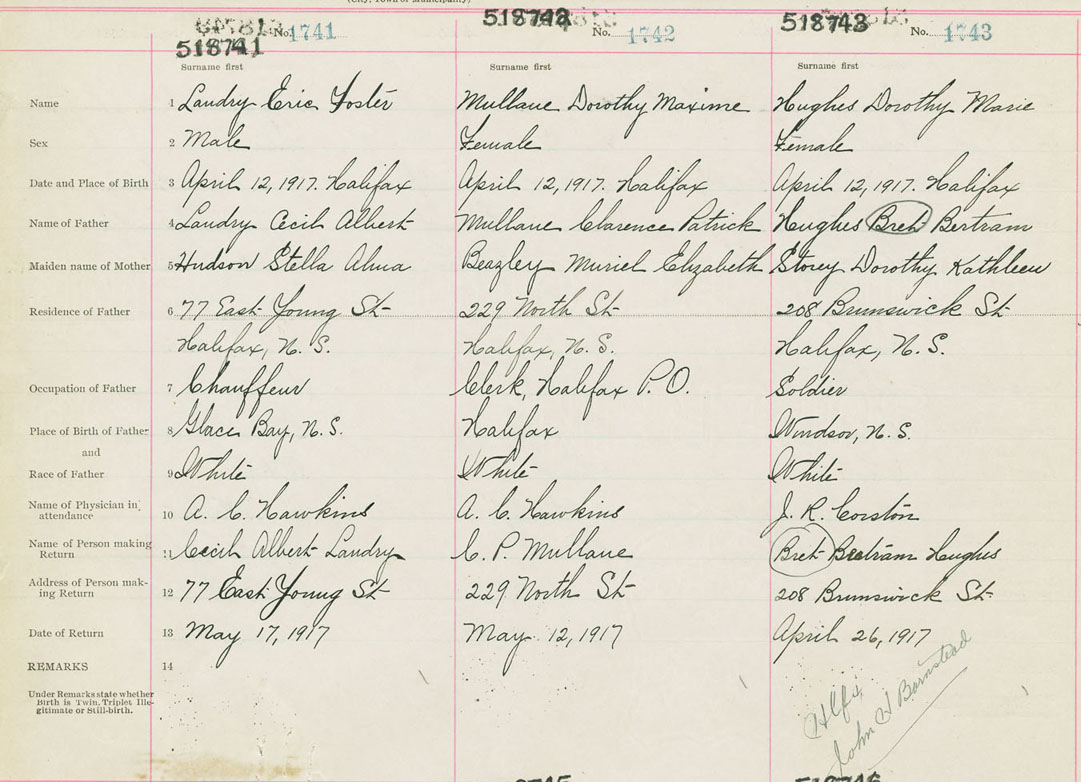 (City, Town or Municipality)
518741 No. 1741 518742 No. 1742 518743 No. 1743
Surname first Surname first Surname first
Name 1 Landry Eric Foster Mullane Dorothy Maxime Hughes Dorothy Marie
Sex 2 Male Female Female
Date and Place of Birth 3 April 12, 1917. Halifax April 12, 1917. Halifax April 12, 1917. Halifax
Name of Father 4 Landry Cecil Albert Mullane Clarence Patrick Hughes Bret Bertram
Maiden name of Mother 5 Hudson Stella Alma Beazley Muriel Elizabeth Storey Dorothy Kathleen
Residence of Father 6 77 East Young St 229 North St 208 Brunswick St
Halifax, N.S. Halifax, N.S. Halifax, N.S.
Occupation of Father 7 Chauffeur Clerk, Halifax P.O. Soldier
Place of Birth of Father 8 Glace Bay, N.S. Halifax Windsor, N.S.
and
Race of Father 9 White White White
Name of Physician in attendance 10 A. C. Hawkins A. C. Hawkins J. R. Corston
Name of Person making Return 11 Cecil Albert Landry C. P. Mullane Bret Bertram Hughes
Address of Person making Return 12 77 East Young St 229 North St 208 Brunswick St.
Date of Return 13 May 17, 1917 May 12, 1917 April 26, 1917
REMARKS 14
Under Remarks state whether
Birth is Twin, Triplet Ille-
gitimate or Still-birth.
Hlfx
John H Barnstead